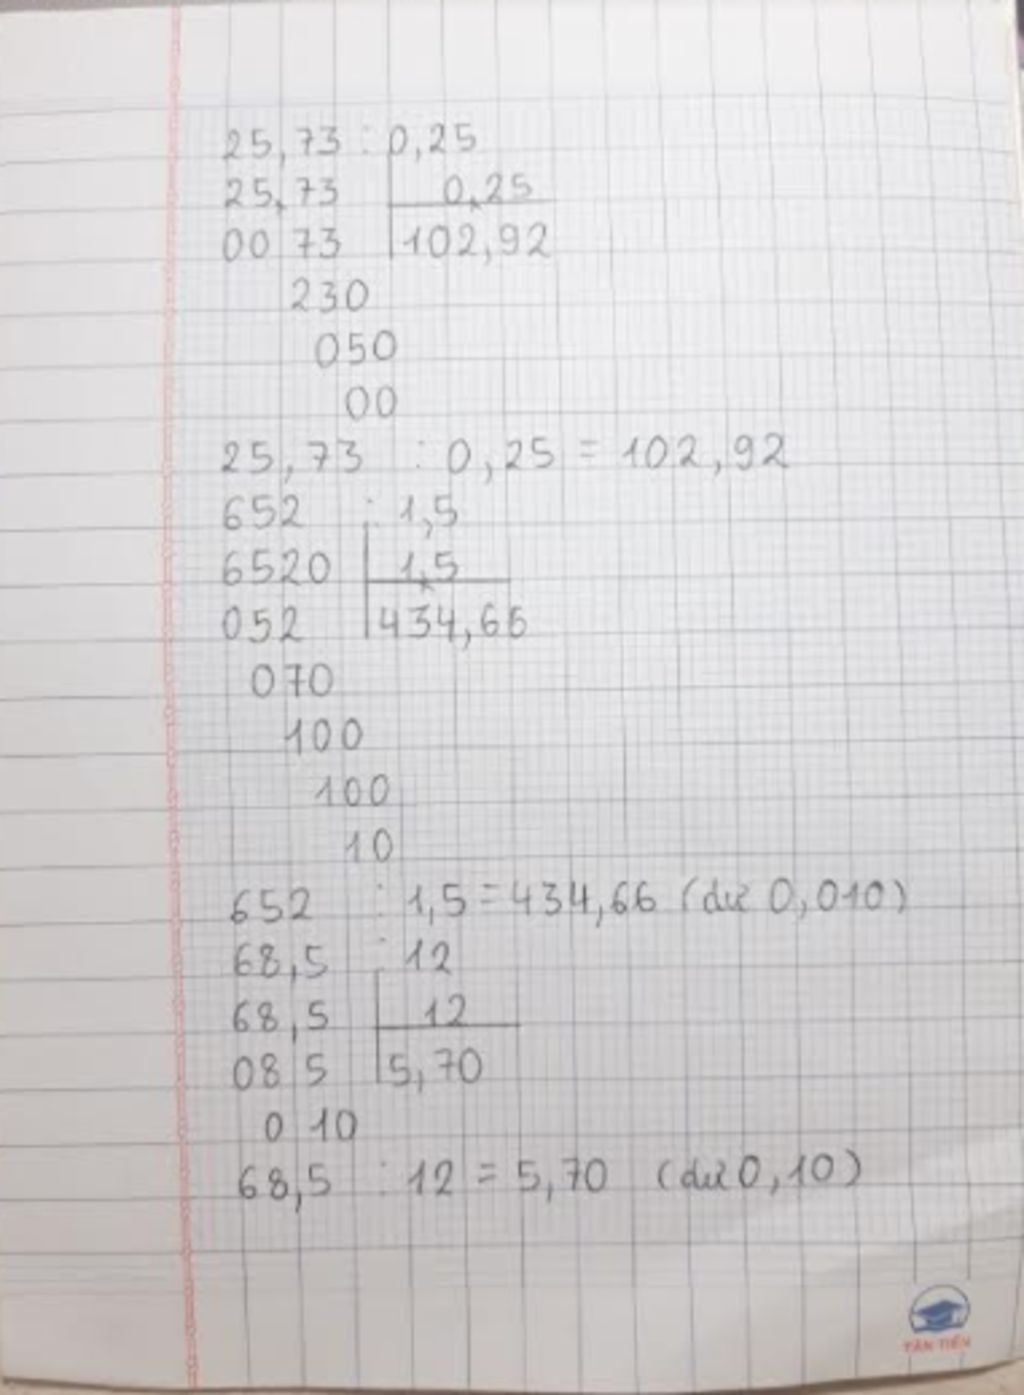 25,73 : 0,25
25,73 0,25
00 73 102,92
230
050
00
25,73 : 0,25 = 102,92
652 : 1,5
6520 1,5
052 434,66
070
100
100
10
652 : 1,5 = 434,66 (dư 0,010)
68,5 : 12
68,5 12
08 5 5,70
0 10
68,5 : 12 = 5,70 (dư 0,10)
TÂN TIẾN